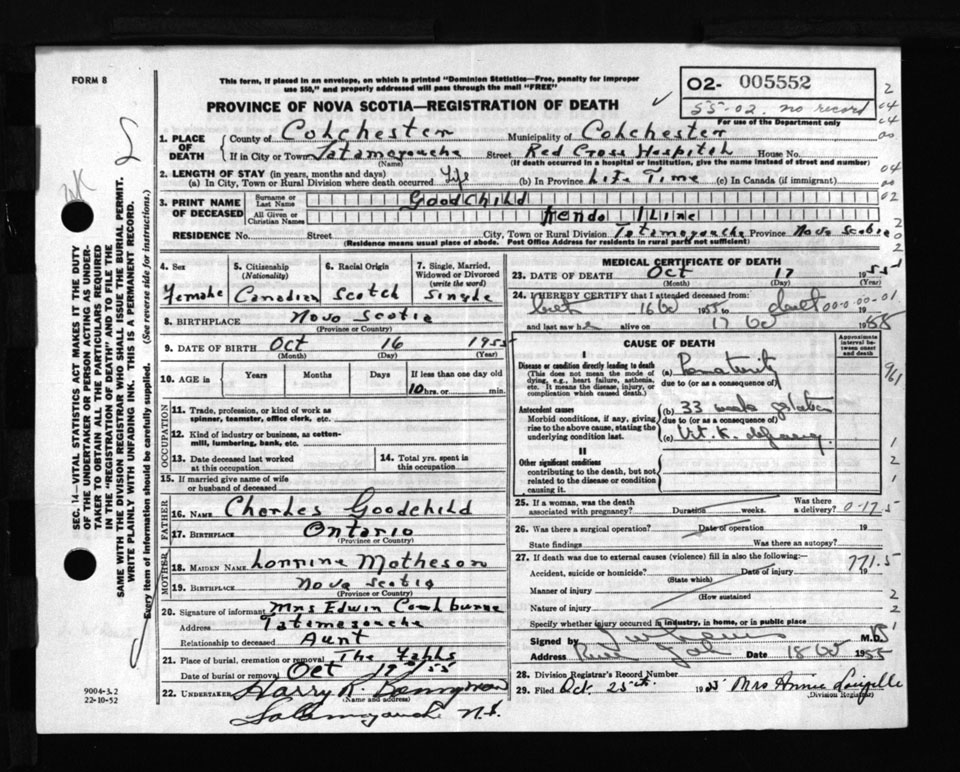 FORM 8
This form, if placed in an envelope, on which is printed "Dominion Statistics—Free, penalty for improper
use $50," and properly addressed will pass through the mail "FREE"
PROVINCE OF NOVA SCOTIA—REGISTRATION OF DEATH
02- 005552
55-02. no record
For use of the Department only
1. PLACE OF DEATH
County of Colchester Municipality of Colchester
If in City or Town Tatamagouche Street Red Cross Hospital House No.
(Name) (If death occurred in a hospital or institution, give the name instead of street and number)
2. LENGTH OF STAY (in years, months and days)
(a) In City, Town or Rural Division where death occurred Life (b) In Province Life Time (c) In Canada (if immigrant)
3. PRINT NAME OF DECEASED
Surname or Last Name Goodchild
All Given or Christian Names
RESIDENCE No. Street City, Town or Rural Division Tatamagouche Province Nova Scotia
(Residence means usual place of abode. Post Office Address for residents in rural parts not sufficient)
4. Sex
Female
5. Citizenship (Nationality)
Canadian
6. Racial Origin
Scotch
7. Single, Married, Widowed or Divorced (write the word)
Single
8. BIRTHPLACE Nova Scotia
(Province or Country)
9. DATE OF BIRTH Oct 16 1955
(Month) (Day) (Year)
10. AGE in Years Months Days If less than one day old
10 hrs. or min.
OCCUPATION
11. Trade, profession, or kind of work as
spinner, teamster, office clerk, etc.
12. Kind of industry or business, as cotton-
mill, lumbering, bank, etc.
13. Date deceased last worked
at this occupation
14. Total yrs. spent in
this occupation
15. If married give name of wife
or husband of deceased
FATHER
16. NAME Charles Goodchild
17. BIRTHPLACE Ontario
(Province or Country)
MOTHER
18. MAIDEN NAME Lorrine Matheson
19. BIRTHPLACE Nova Scotia
(Province or Country)
20. Signature of informant Mrs Edwin
Address Tatamagouche
Relationship to deceased Aunt
21. Place of burial, cremation or removal The Falls
Date of burial or removal Oct 19 1955
22. UNDERTAKER Harry R.
(Name and address)
Tatamagouche N.S.
MEDICAL CERTIFICATE OF DEATH
23. DATE OF DEATH Oct 17 1955
(Month) (Day) (Year)
24. I HEREBY CERTIFY that I attended deceased from:
birth 16 1955 to death 00-0-00-01
and last saw h alive on 17 1955
CAUSE OF DEATH
Approximate interval between onset and death
I
Disease or condition directly leading to death
(This does not mean the mode of
dying, e.g., heart failure, asthenia,
etc. It means the disease, injury, or
complication which caused death.)
(a) Prematurity
due to (or as a consequence of)
Antecedent causes
Morbid conditions, if any, giving
rise to the above cause, stating the
underlying condition last.
(b) 33 weeks gestation
due to (or as a consequence of)
(c) Vit. K. deficiency
II
Other significant conditions
contributing to the death, but not
related to the disease or condition
causing it.
25. If a woman, was the death
associated with pregnancy? Duration weeks. Was there a delivery? 0-17
26. Was there a surgical operation? Date of operation 19
State findings Was there an autopsy?
27. If death was due to external causes (violence) fill in also the following:—
Accident, suicide or homicide? Date of injury 19
(State which)
771.5
Manner of injury
(How sustained)
Nature of injury
Specify whether injury occurred in industry, in home, or in public place
Signed by M.D.
Address Date 18 1955
28. Division Registrar's Record Number
29. Filed Oct. 25th. 1955 Mrs Annie
(Division Registrar)
SEC. 14—VITAL STATISTICS ACT MAKES IT THE DUTY
OF THE UNDERTAKER OR PERSON ACTING AS UNDER-
TAKER TO OBTAIN ALL THE PARTICULARS REQUIRED
IN THE "REGISTRATION OF DEATH" AND TO FILE THE
SAME WITH THE DIVISION REGISTRAR WHO SHALL ISSUE THE BURIAL PERMIT.
WRITE PLAINLY WITH UNFADING INK. THIS IS A PERMANENT RECORD.
Every item of information should be carefully supplied. (See reverse side for instructions.)
9004-3.2
22-10-52